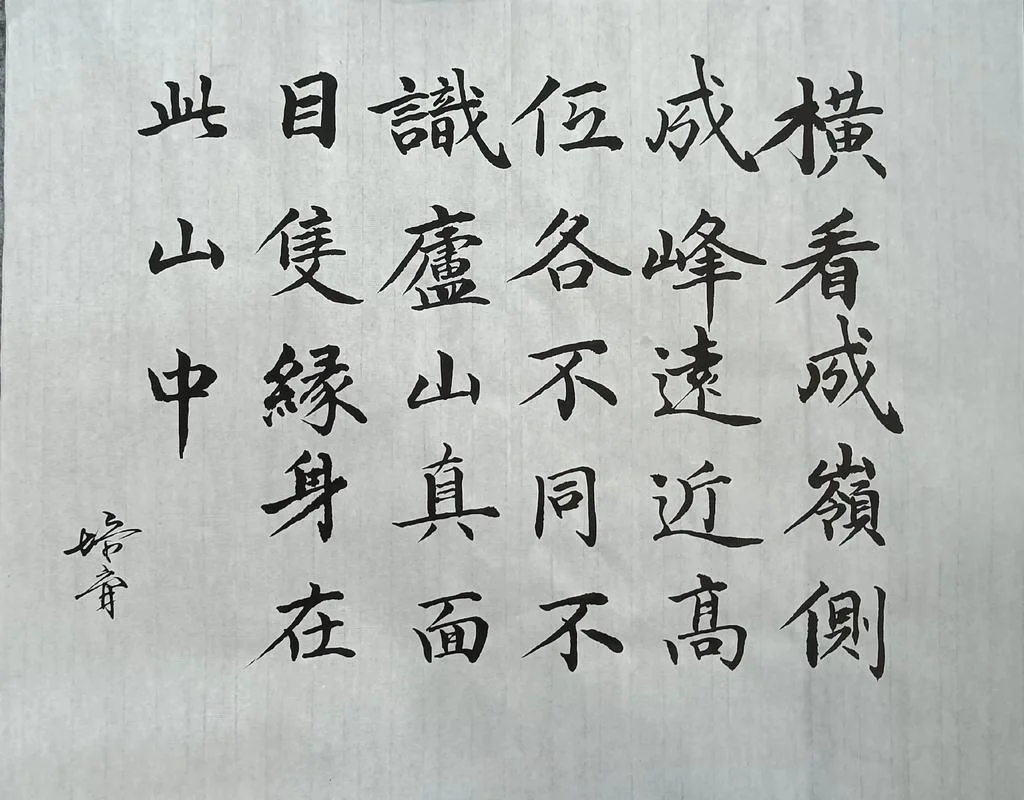 橫看成嶺側
成峰遠近髙
仾各不同不
識廬山真面
目隻緣身在
此山中